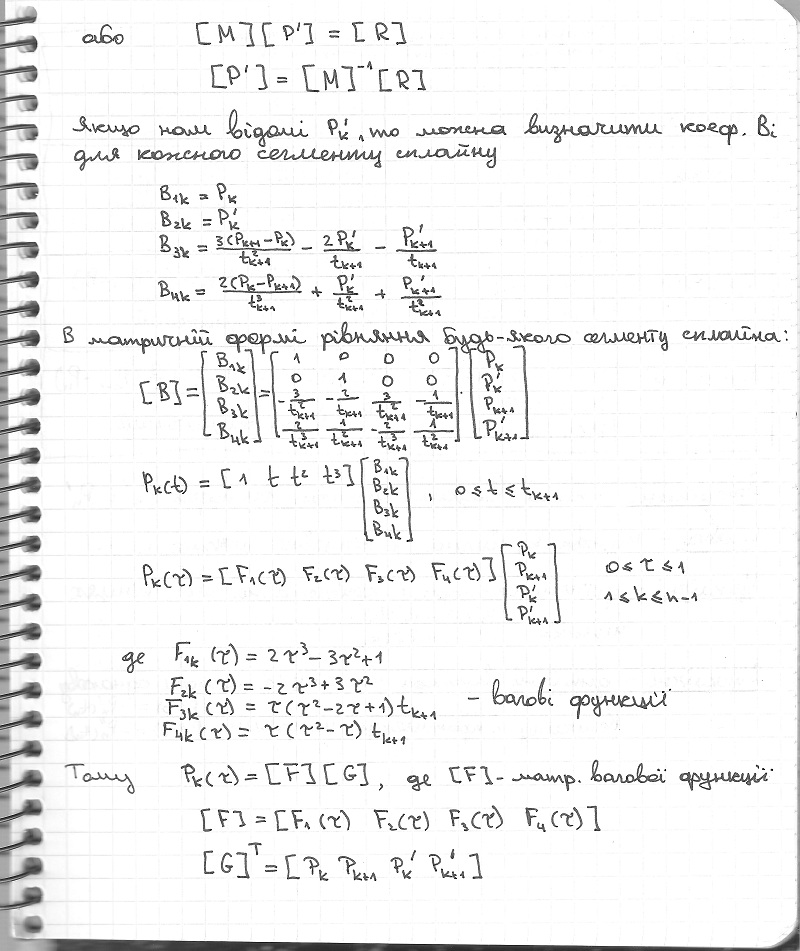 або [M][P'] = [R]
[P'] = [M]⁻¹[R]
Якщо нам відомі Pₖ', то можна визначити коеф. Bi
для кожного сегменту сплайну
B₁ₖ = Pₖ
B₂ₖ = Pₖ'
B₃ₖ = 3(Pₖ₊₁-Pₖ)/t²ₖ₊₁ - 2Pₖ'/tₖ₊₁ - P'ₖ₊₁/tₖ₊₁
B₄ₖ = 2(Pₖ-Pₖ₊₁)/t³ₖ₊₁ + Pₖ'/t²ₖ₊₁ + P'ₖ₊₁/t²ₖ₊₁
В матричній формі рівняння будь-якого сегменту сплайна:
[B] = [B₁ₖ B₂ₖ B₃ₖ B₄ₖ] = [1 0 0 0
0 1 0 0
-3/t²ₖ₊₁ -2/tₖ₊₁ 3/t²ₖ₊₁ -1/tₖ₊₁
2/t³ₖ₊₁ 1/t²ₖ₊₁ -2/t³ₖ₊₁ 1/t²ₖ₊₁] · [Pₖ Pₖ' Pₖ₊₁ P'ₖ₊₁]
Pₖ(t) = [1 t t² t³] [B₁ₖ B₂ₖ B₃ₖ B₄ₖ] , 0≤t≤tₖ₊₁
Pₖ(τ) = [F₁(τ) F₂(τ) F₃(τ) F₄(τ)] [Pₖ Pₖ₊₁ Pₖ' P'ₖ₊₁] 0≤τ≤1
1≤k≤n-1
де F₁ₖ(τ) = 2τ³-3τ²+1
F₂ₖ(τ) = -2τ³+3τ²
F₃ₖ(τ) = τ(τ²-2τ+1)tₖ₊₁ - вагові функції
F₄ₖ(τ) = τ(τ²-τ)tₖ₊₁
Тому Pₖ(τ) = [F][G], де [F]-матр. вагової функції
[F] = [F₁(τ) F₂(τ) F₃(τ) F₄(τ)]
[G]ᵀ = [Pₖ Pₖ₊₁ Pₖ' P'ₖ₊₁]